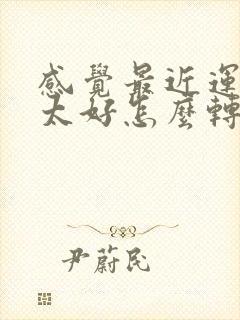 感覺最近運
太好怎麼轉
尹蔚民